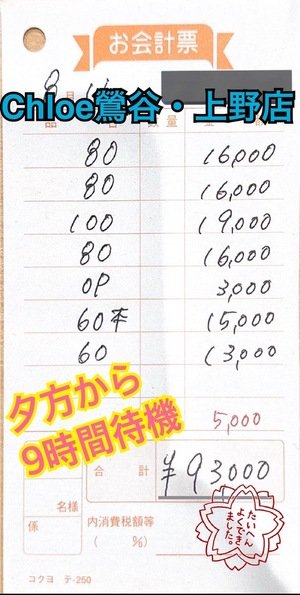 お会計票
8月
Chloe鶯谷・上野店
80 16,000
80 16,000
100 19,000
80 16,000
OP 3,000
60本 15,000
60 13,000
夕方から
9時間待機
5,000
合計 ¥93000
名様
係
内消費税額等
( %)
たいへん
よくでき
ました。
コクヨ テ-250